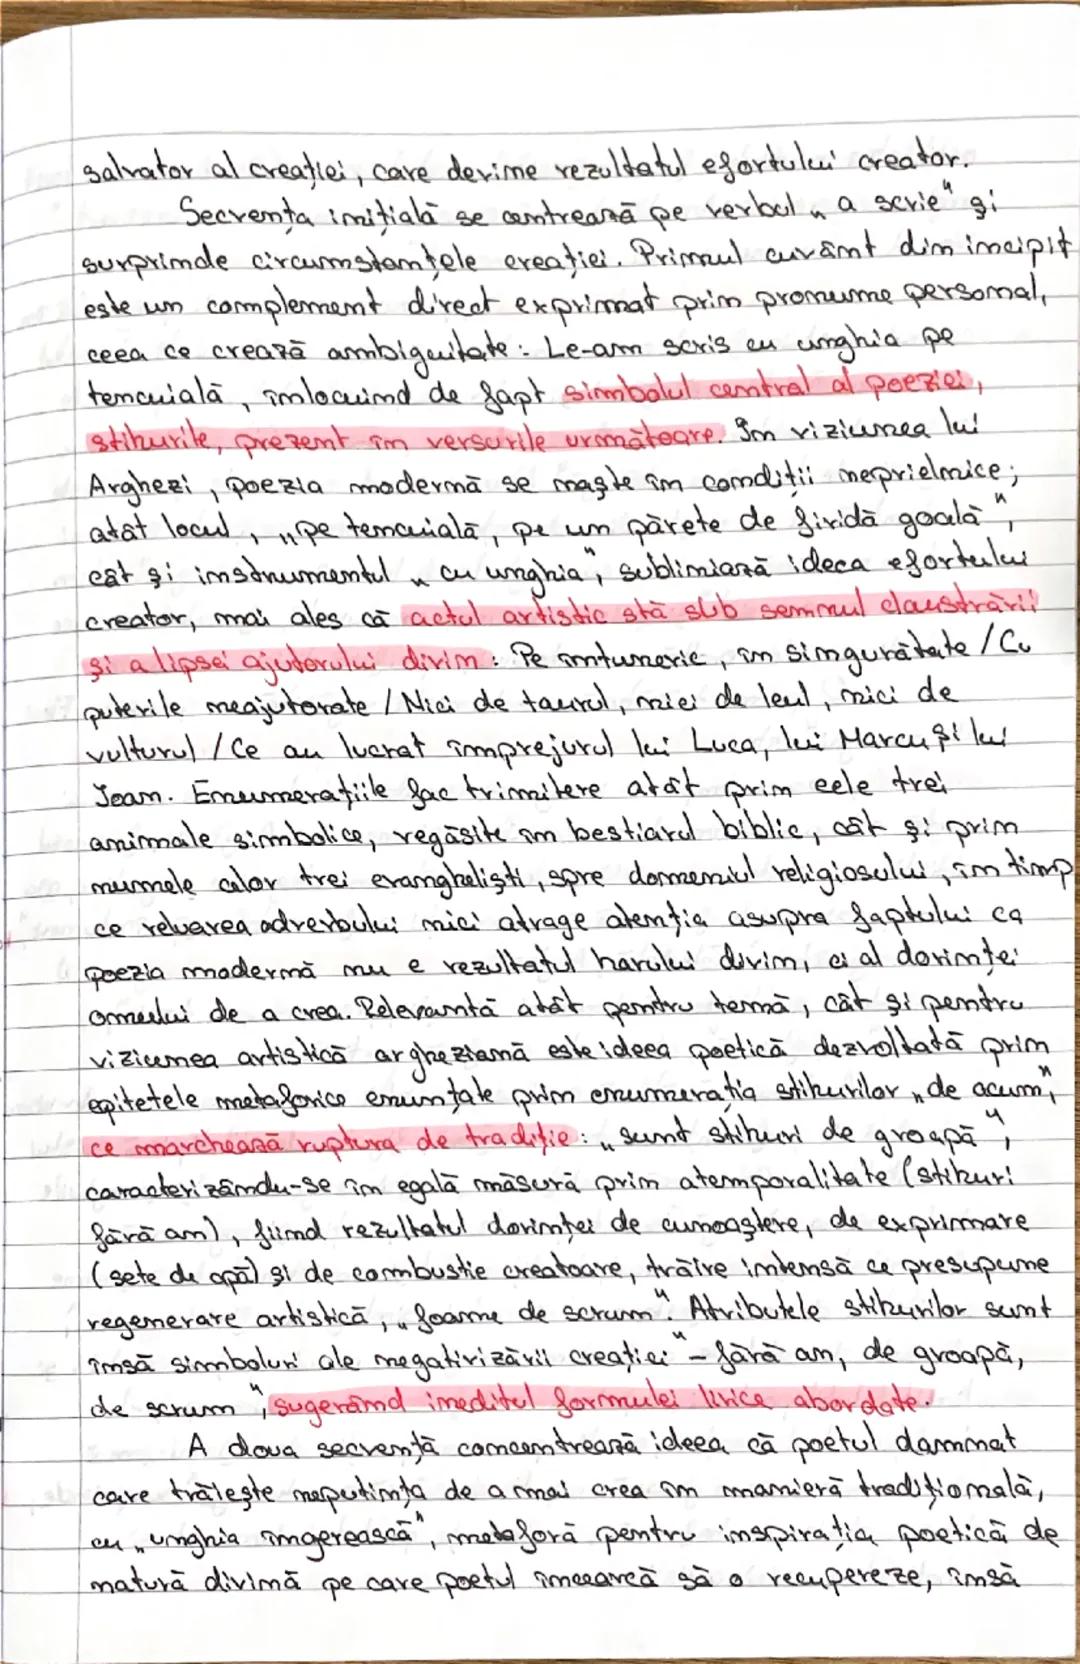 salvator al creației, care devine rezultatul efortului creator.
Secvența inițială se centrează pe verbul „a scrie" și
surprinde circumstanțele creației. Primul cuvânt din incipit
este un complement direct exprimat prin pronume personal,
ceea ce crează ambiguitate: Le-am scris cu unghia pe
tencuială, înlocuind de fapt simbolul central al poeziei,
stihurile, prezent în versurile următoare. În viziunea lui
Arghezi, poezia modernă se naște în condiții neprielnice;
atât locul, „pe tencuială, pe un părete de firidă goală",
cât și instrumentul „cu unghia", subliniază ideea efortului
creator, mai ales că actul artistic stă sub semnul claustrării
și a lipsei ajutorului divin: Pe întuneric, în singurătate / Cu
puterile neajutorate / Nici de taurul, nici de leul, nici de
vulturul / Ce au lucrat împrejurul lui Luca, lui Marcu și lui
Ioan. Enumerațiile fac trimitere atât prin cele trei
animale simbolice, regăsite în bestiarul biblic, cât și prin
numele celor trei evangheliști, spre domeniul religiosului, în timp
ce reluarea adverbului nici atrage atenția asupra faptului ca
poezia modernă nu e rezultatul harului divin, ci al dorinței
omului de a crea. Relevantă atât pentru temă, cât și pentru
viziunea artistică argheziană este ideea poetică dezvoltată prin
epitetele metaforice enunțate prin enumerația stihurilor „de acum",
ce marchează ruptura de tradiție: „sunt stihuri de groapă",
caracterizându-se în egală măsură prin atemporalitate (stihuri
fără an), fiind rezultatul dorinței de cunoaștere, de exprimare
(sete de apă) și de combustie creatoare, trăire intensă ce presupune
regenerare artistică, „foame de scrum". Atributele stihurilor sunt
însă simboluri ale negativizării creației – fără an, de groapă,
de scrum", sugerând ineditul formulei lirice abordate.
A doua secvență concentrează ideea că poetul damnat
care trăiește neputința de a mai crea în manieră tradițională,
cu „unghia îngerească", metaforă pentru inspirația poetică de
natură divină pe care poetul încearcă să o recupereze, însă